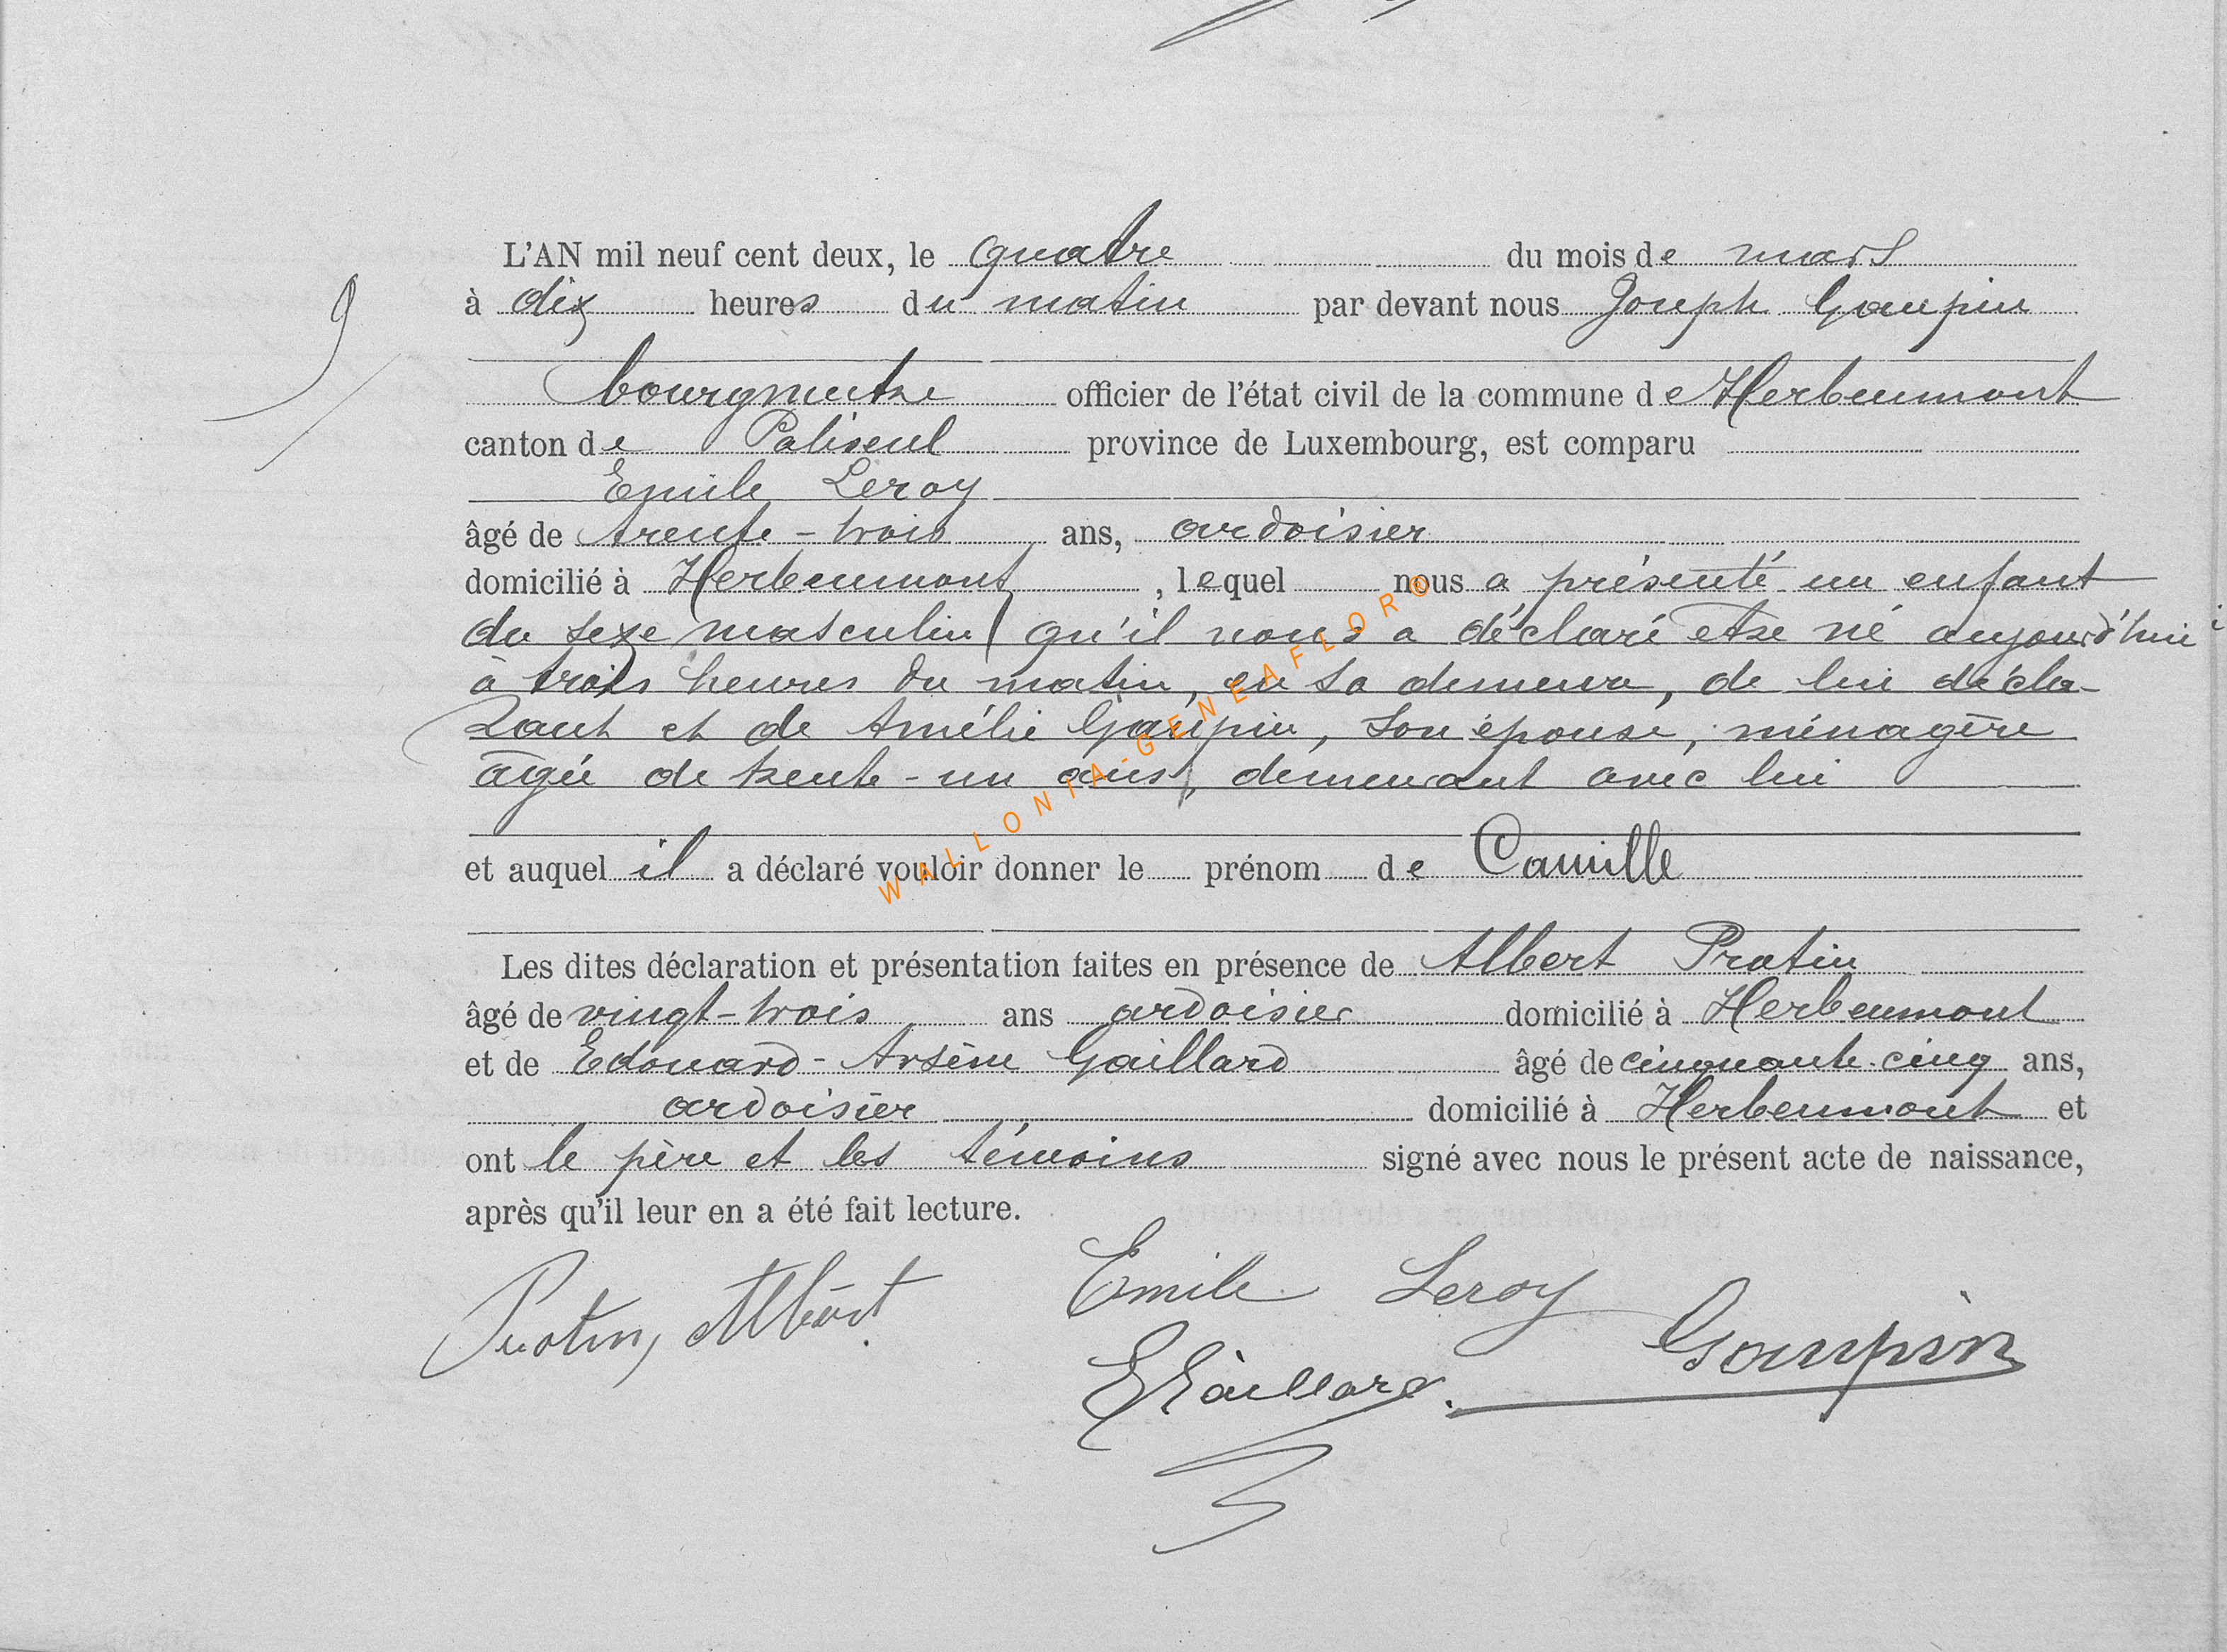 9
L'AN mil neuf cent deux, le quatre du mois de mars
à dix heures du matin par devant nous Joseph Gaupin
bourgmestre officier de l'état civil de la commune de Herbeumont
canton de Paliseul province de Luxembourg, est comparu
Emile Leroy
âgé de trente-trois ans, ardoisier
domicilié à Herbeumont, lequel nous a présenté un enfant
du sexe masculin qu'il nous a déclaré être né aujourd'hui
à trois heures du matin, en sa demeure, de lui décla-
rant et de Amélie Gaupin, son épouse, ménagère
âgée de trente-un ans, demeurant avec lui
et auquel il a déclaré vouloir donner le prénom de Camille
Les dites déclaration et présentation faites en présence de Albert Pratin
âgé de vingt-trois ans ardoisier domicilié à Herbeumont
et de Edouard-Arsène Gaillard âgé de cinquante-cinq ans,
ardoisier domicilié à Herbeumont et
ont le père et les témoins signé avec nous le présent acte de naissance,
après qu'il leur en a été fait lecture.
Emile Leroy
Albert
Gaupin
EGaillard.
WALLONIA-GENEAFLOR©